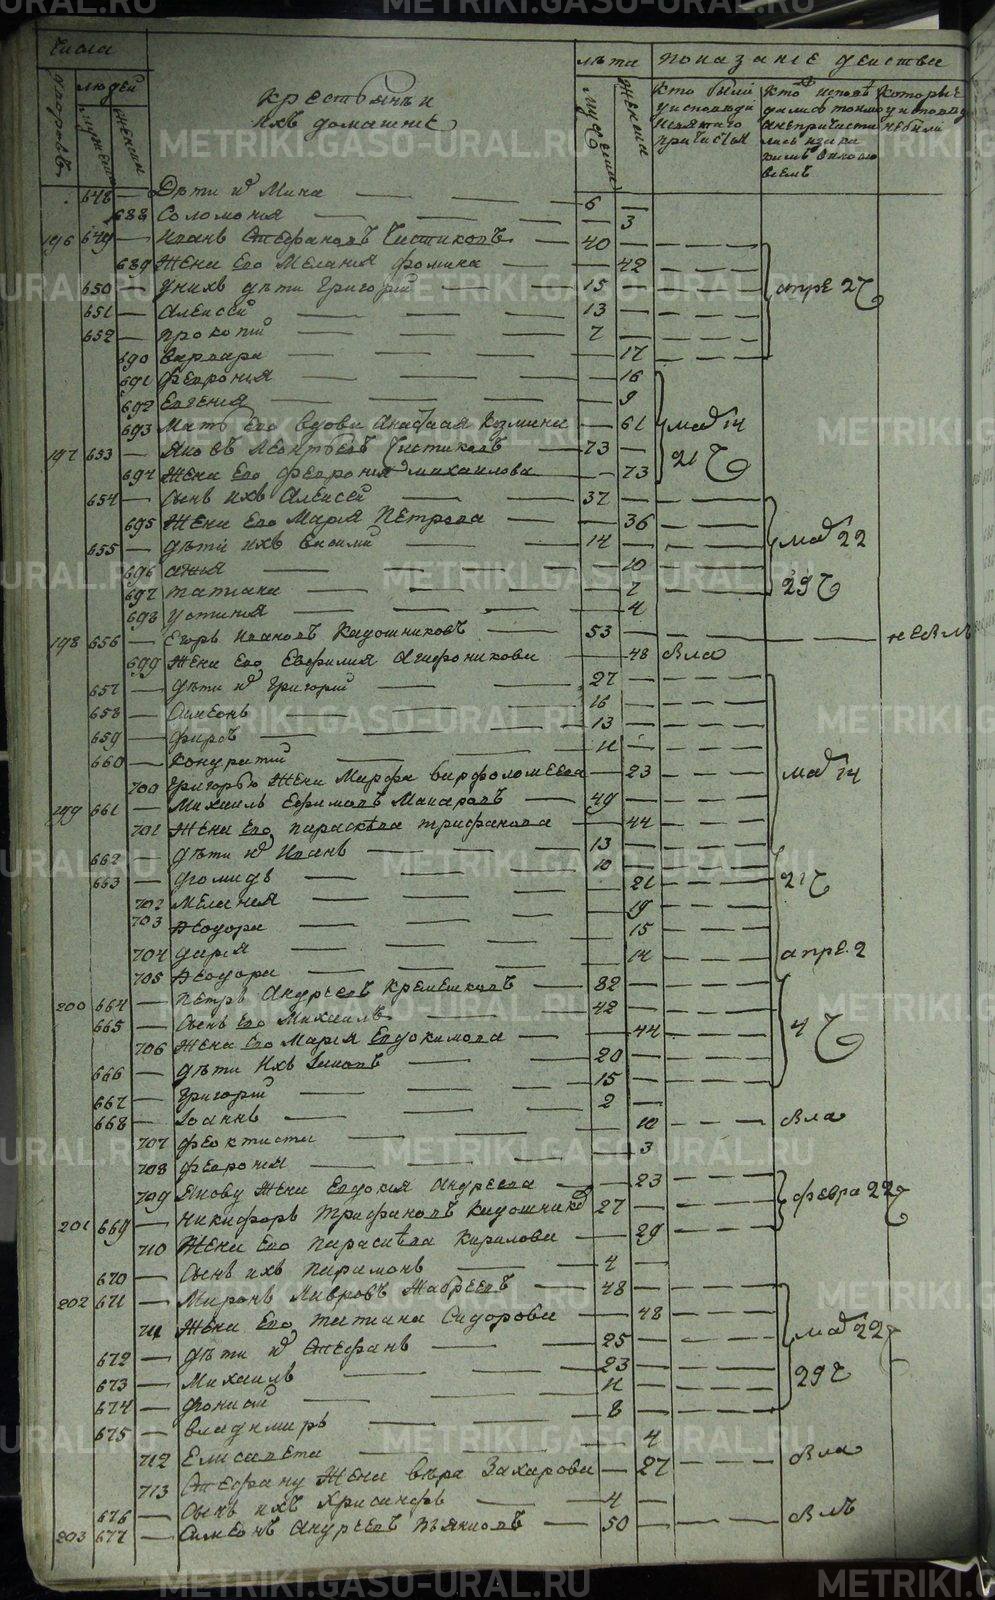 числа
людей
дворовъ
мужеска
женска
крестьянъ и
ихъ домашние
лѣта
мужеска
женска
показание действи
кто были у исповеди и святаго причастья
которые
648 — Дѣти иⷯ Мина — 6 —
688 Соломонїя — 3
196 649 — Иванъ Стефановъ Чистиковъ — 40 —
689 Жена Его Меланїя Фомина — 42
650 — у нихъ дѣти Григорїй — 15 — апре 27
651 — Алексей — 13 —
652 — прокопїй — 7 —
690 варвара — 17
691 Феврония — 16
692 Евгенїя — 9
693 Мать Его вдова Анастасия Козмина — 61 маⷬ 14
197 653 — Яковъ Леонтьевъ Чистиковъ — 73 —
694 Жена Его феврония михаилова — 73 21 Ч
654 — Сынъ ихъ Алексей — 37 —
695 Жена Его Марїя Петрова — 36
655 — дѣти ихъ Василий — 14 — маⷬ 22
696 анна — 10
697 татиана — 7 29 Ч
698 устинїя — 4
198 656 — Егоръ Ивановъ Кадошниковъ — 53 — не былъ
699 Жена Его Евфимия Агафоникова — 48 была
657 — дѣти иⷯ Григорїй — 27 —
658 — Симеонъ — 16 —
659 — фирсъ — 13 —
660 — Кондратїй — 11 —
700 Григорью Жена Марфа варфоломеева — 23 маⷬ 14
199 661 — Михаилъ Ефимовъ Макаровъ — 49 —
701 Жена Его параскева трифанова — 44
662 — дѣти иⷯ Иванъ — 13 —
663 — диомидъ — 10 —
702 Мелания — 21 21 Ч
703 Феодора — 19
704 дария — 15
705 Феодора — 14 апре. 2
200 664 — Петръ Андреевъ Кремешковъ — 82 —
665 — Сынъ Его Михаилъ — 42 —
706 Жена Его Марїя Евдокимова — 44 4 Ч
666 — дѣти ихъ Иаковъ — 20 —
667 — Григорїй — 15 —
668 — Iоаннъ — 2 —
707 феоктиста — 10 была
708 феврония — 3
709 Якову Жена Евдокїя Андреева — 23 февра 22
201 669 — никифоръ Трифановъ Кадошникоⷡ — 27 —
710 Жена Его Параскева Кирилова — 29
670 — Сынъ ихъ Парамонъ — 4 —
202 671 — Миронъ Лавровъ Жабреевъ — 48 —
711 Жена Его Татиана Сидорова — 48 маⷬ 22
672 — дѣти иⷯ Стефанъ — 25 —
673 — Михаилъ — 23 — 29 Ч
674 — — 11 —
675 — владимиръ — 8 —
712 Елисавета — 4
713 Стефану Жена вѣра Захарова — 27 была
676 — Сынъ ихъ Хрисанфъ — 4 —
203 677 — Симеонъ Андреевъ Пьянковъ — 50 — былъ
METRIKI.GASO-URAL.RU